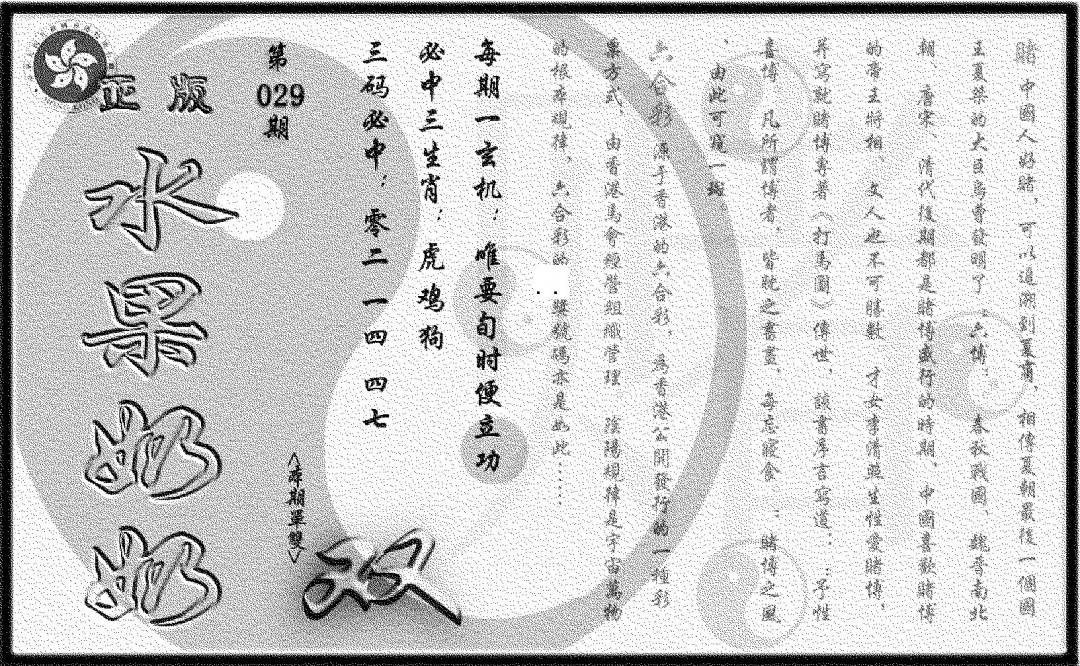 賭 中國人好賭，可以追溯到夏商，相傳夏朝最後一個國
王夏桀的大臣烏曹發明了：六博； 春秋戰國、魏晉南北
朝、唐宋、清代後期都是賭博盛行的時期、中國喜歡賭博
的帝王將相 文人也不可勝數 才女李清照生性愛賭博，
并寫就賭博專著（打馬圖）傳世、該書序言寫道：：予性
喜博 凡所謂博者、皆耽之晝晝、每忘寢食 ：賭博之風
、由此可窺一斑
六合彩 源于香港的六合彩，為香港公開發行的一種彩
票方式、由香港馬會經營組織管理 陰陽規律是宇宙萬物
的根本規律，六合彩的 獎號碼亦是如此……
每期一玄机：唯要旬时便立功
必中三生肖：虎鸡狗
三码必中：零二 一四 四七
第
029
期
正版
水果奶奶
<本期單雙>
双